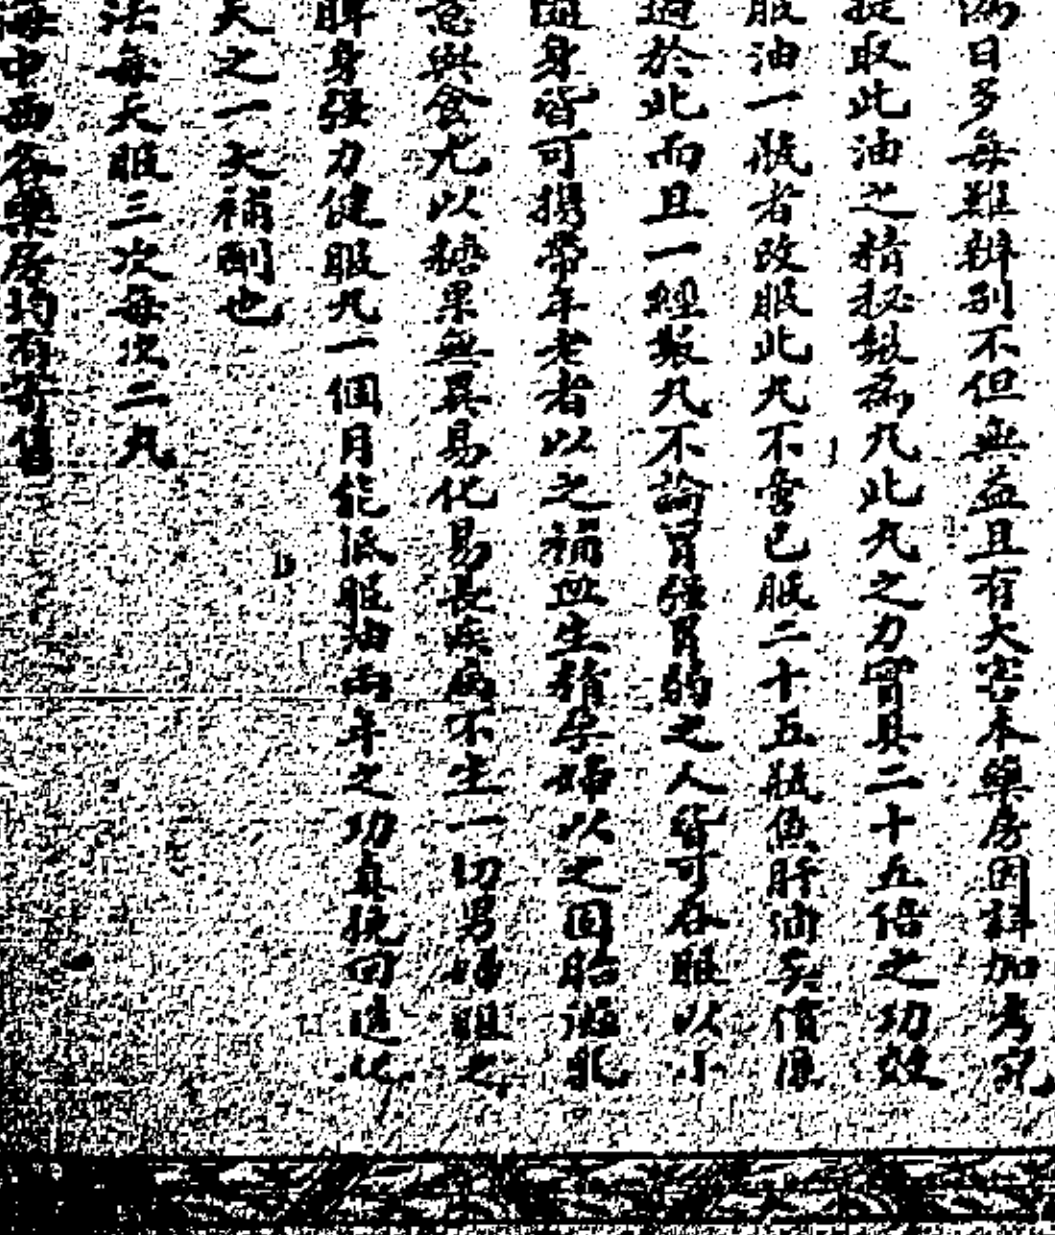 偽日多每難辨别不但無益且有大害本藥房因詳加考究
提取此油之精秘製為丸此丸之力實具二十五倍之功效
服油一瓶者改服此丸不啻已服二十五瓶魚肝油矣價廉
過於此而且一經製丸不論胃強胃弱之人皆可吞服以小
隨身皆可携帶年老者以之補血生精孕婦以之固胎滋乳
意與食尤以糖果無異易化易長疾病不生一切男婦服之
脾身强力健服丸一個月能抵服油兩年之功真挽回造化
天之一大補劑也
法每天服三次每次二丸
海中西各藥房均有寄售